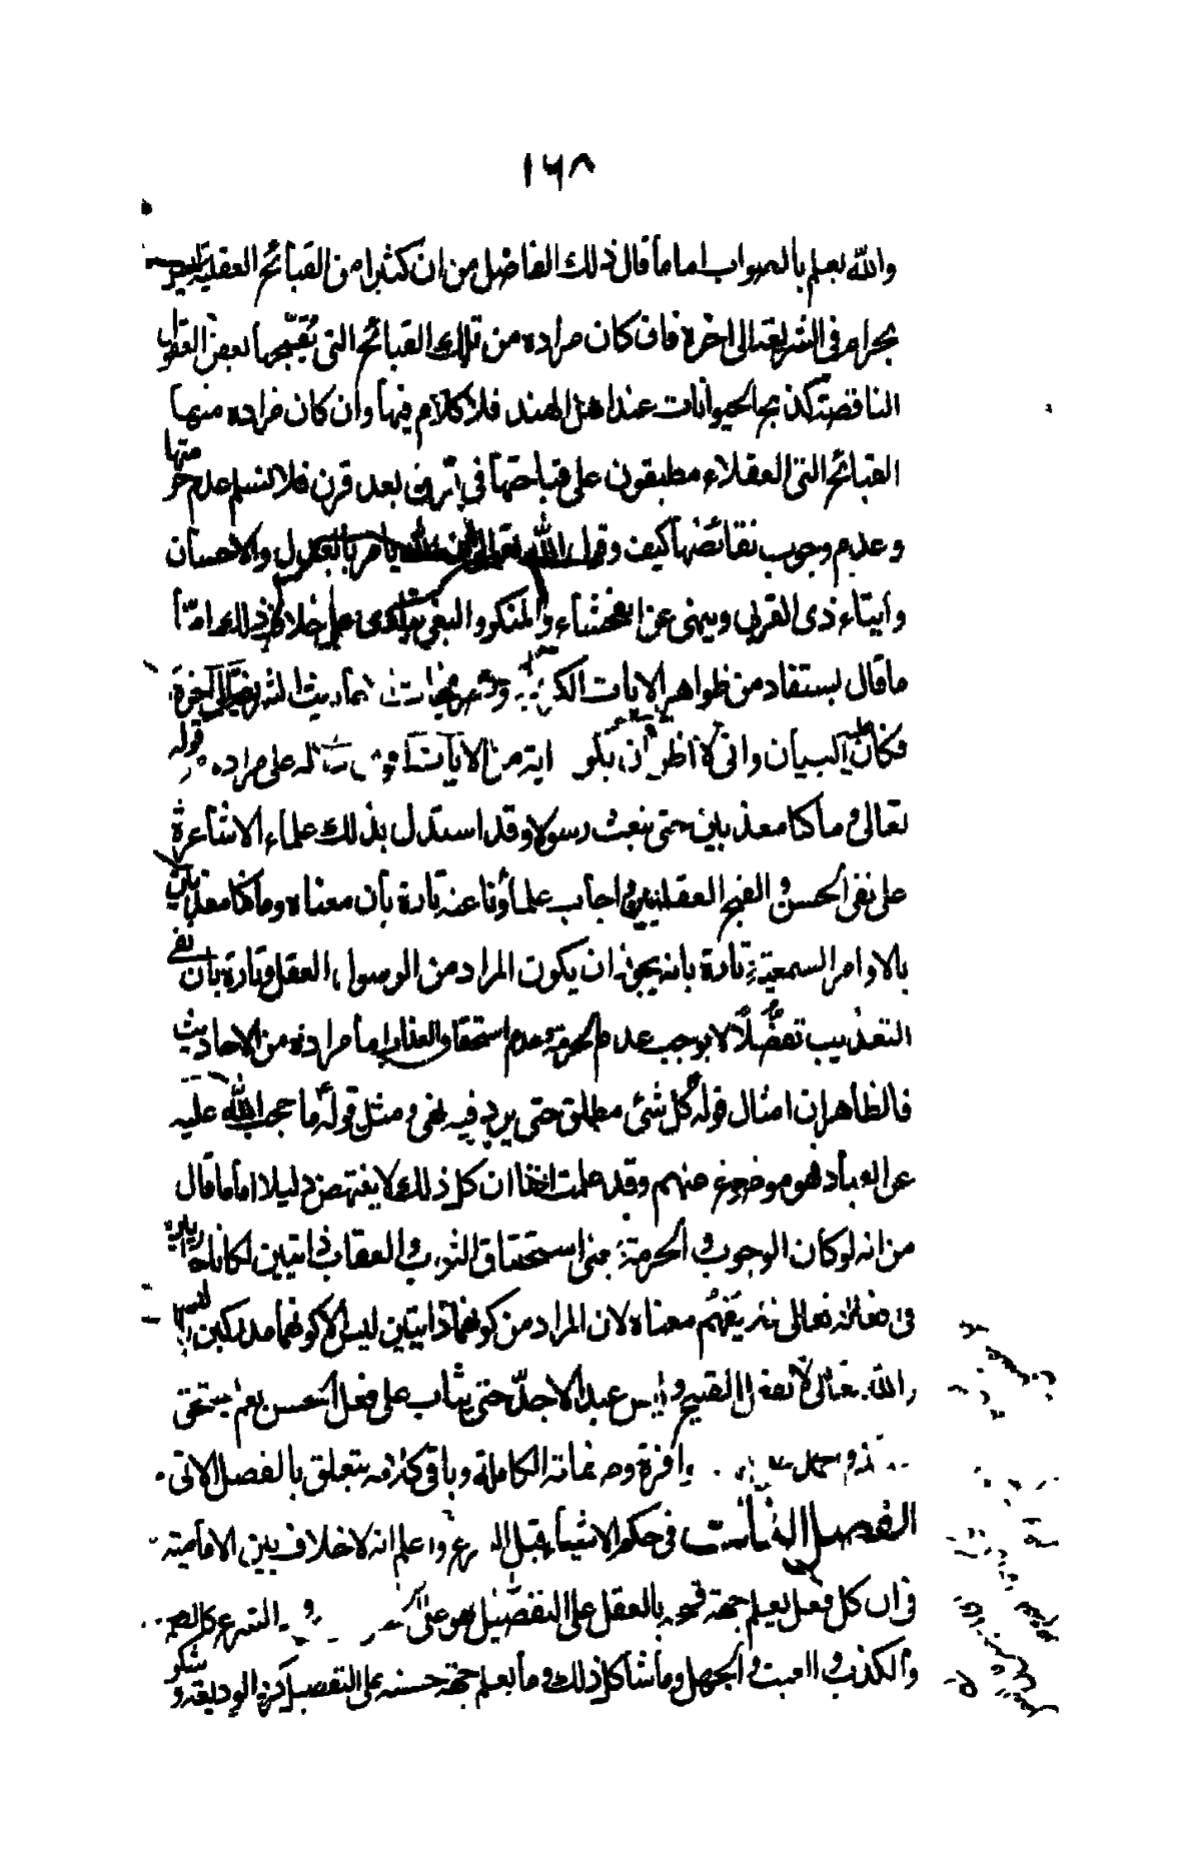 ١٦٨
والله يعلم بالصواب اما ما قال ذلك الفاضل من ان كثيرا من القبائح العقلية ليس
بحرام في الشريعة الى اخره فان كان مراده من تلك القبائح التي تُقبّحها بعض العقول
الناقصة كذبح الحيوانات عند اهل الهند فلا كلام فيها وان كان مراده منها
القبائح التي العقلاء مطبقون على قباحتها في قرن بعد قرن فلا نسلم عدم حرمتها
وعدم وجوب نقائضها كيف وقول الله تعالى ان الله يأمر بالعدل والاحسان
وايتاء ذى القربى وينهى عن الفحشاء والمنكر والبغى ينادى على خلاف ذلك واما
ما قال يستفاد من ظواهر الايات الكريمة الى آخره
فكان عليه البيان وانى لا اظن ان يكون اية من الآيات على مراده قوله
تعالى وما كنا معذبين حتى نبعث رسولا وقد استدل بذلك علماء الاشاعرة
على نفى الحسن والقبح العقليين واجاب علماؤنا عنه تارة بأن معناه وما كنا معذبين
بالاوامر السمعية وتارة بانه يجوز ان يكون المراد من الرسول العقل وتارة بأن نفى
التعذيب تفضّلاً لا يوجب عدم الحرمة وعدم استحقاق العذاب واما مراده من الاحاديث
فالظاهر ان امثال قوله كل شئ مطلق حتى يرد فيه نهى ومثل قوله ما حجب الله عليه
عن العباد فهو موضوع عنهم وقد علمت ان كل ذلك لا ينتهض دليلا اما ما قال
من انه لو كان الوجوب والحرمة بمعنى استحقاق الثواب والعقاب ذاتيين لكانا
فى فعاله تعالى يَفْهُم معناه لان المراد من كونهما ذاتيتين ليس الا كونهما مدركين
والله تعالى لا يفعل القبيح وليس عبد الاجدّ حتى يثاب على فعل الحسن نعم يستحق
وافرة وصفاته الكاملة وباقى كلامه يتعلق بالفصل الاتى
الفصل الثالث فى حكم الاشياء قبل الشرع واعلم انه لا خلاف بين الامامية
فى ان كل فعل يعلم جهة قبحه بالعقل على التفصيل فهو على الشرع كالظلم
والكذب والعبث والجهل وما شاكل ذلك وما يعلم جهة حسنه على التفصيل كرد الوديعة وشكر